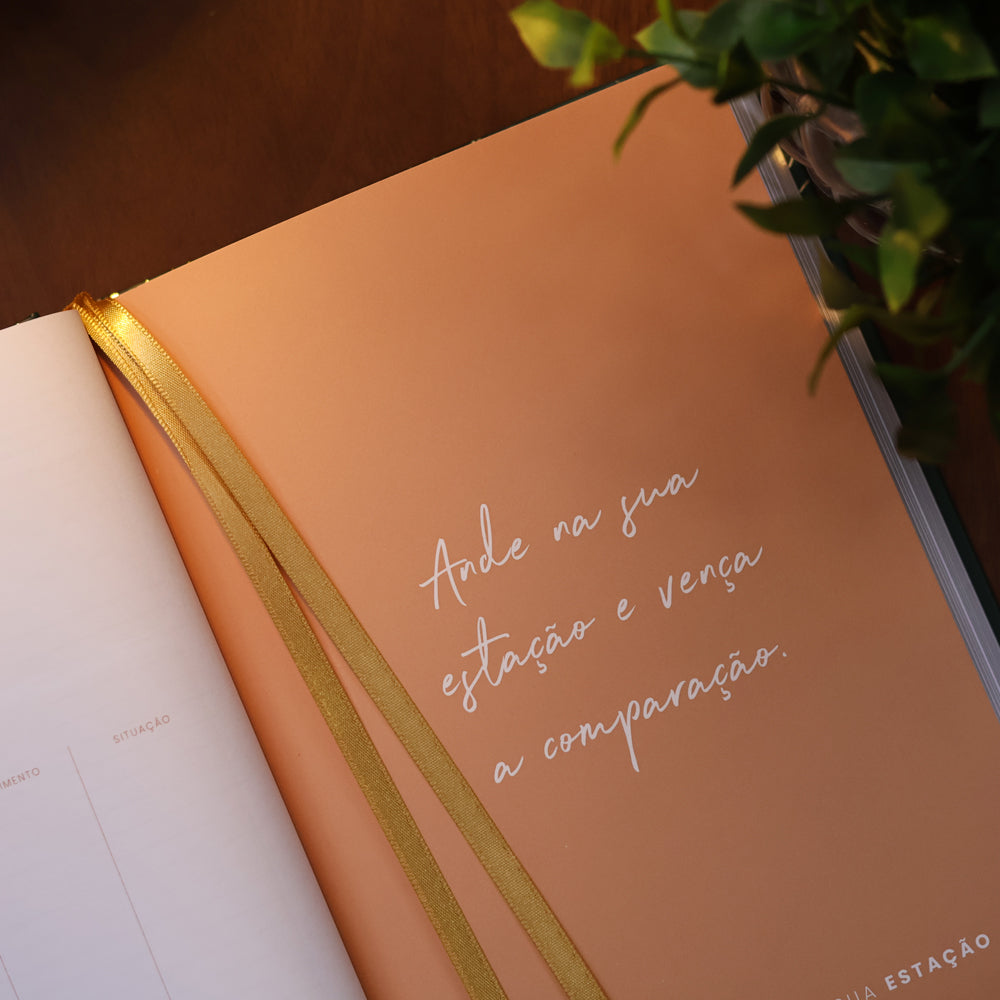 SITUAÇÃO
Ande na sua
estação e vença
a comparação.
SUA ESTAÇÃO